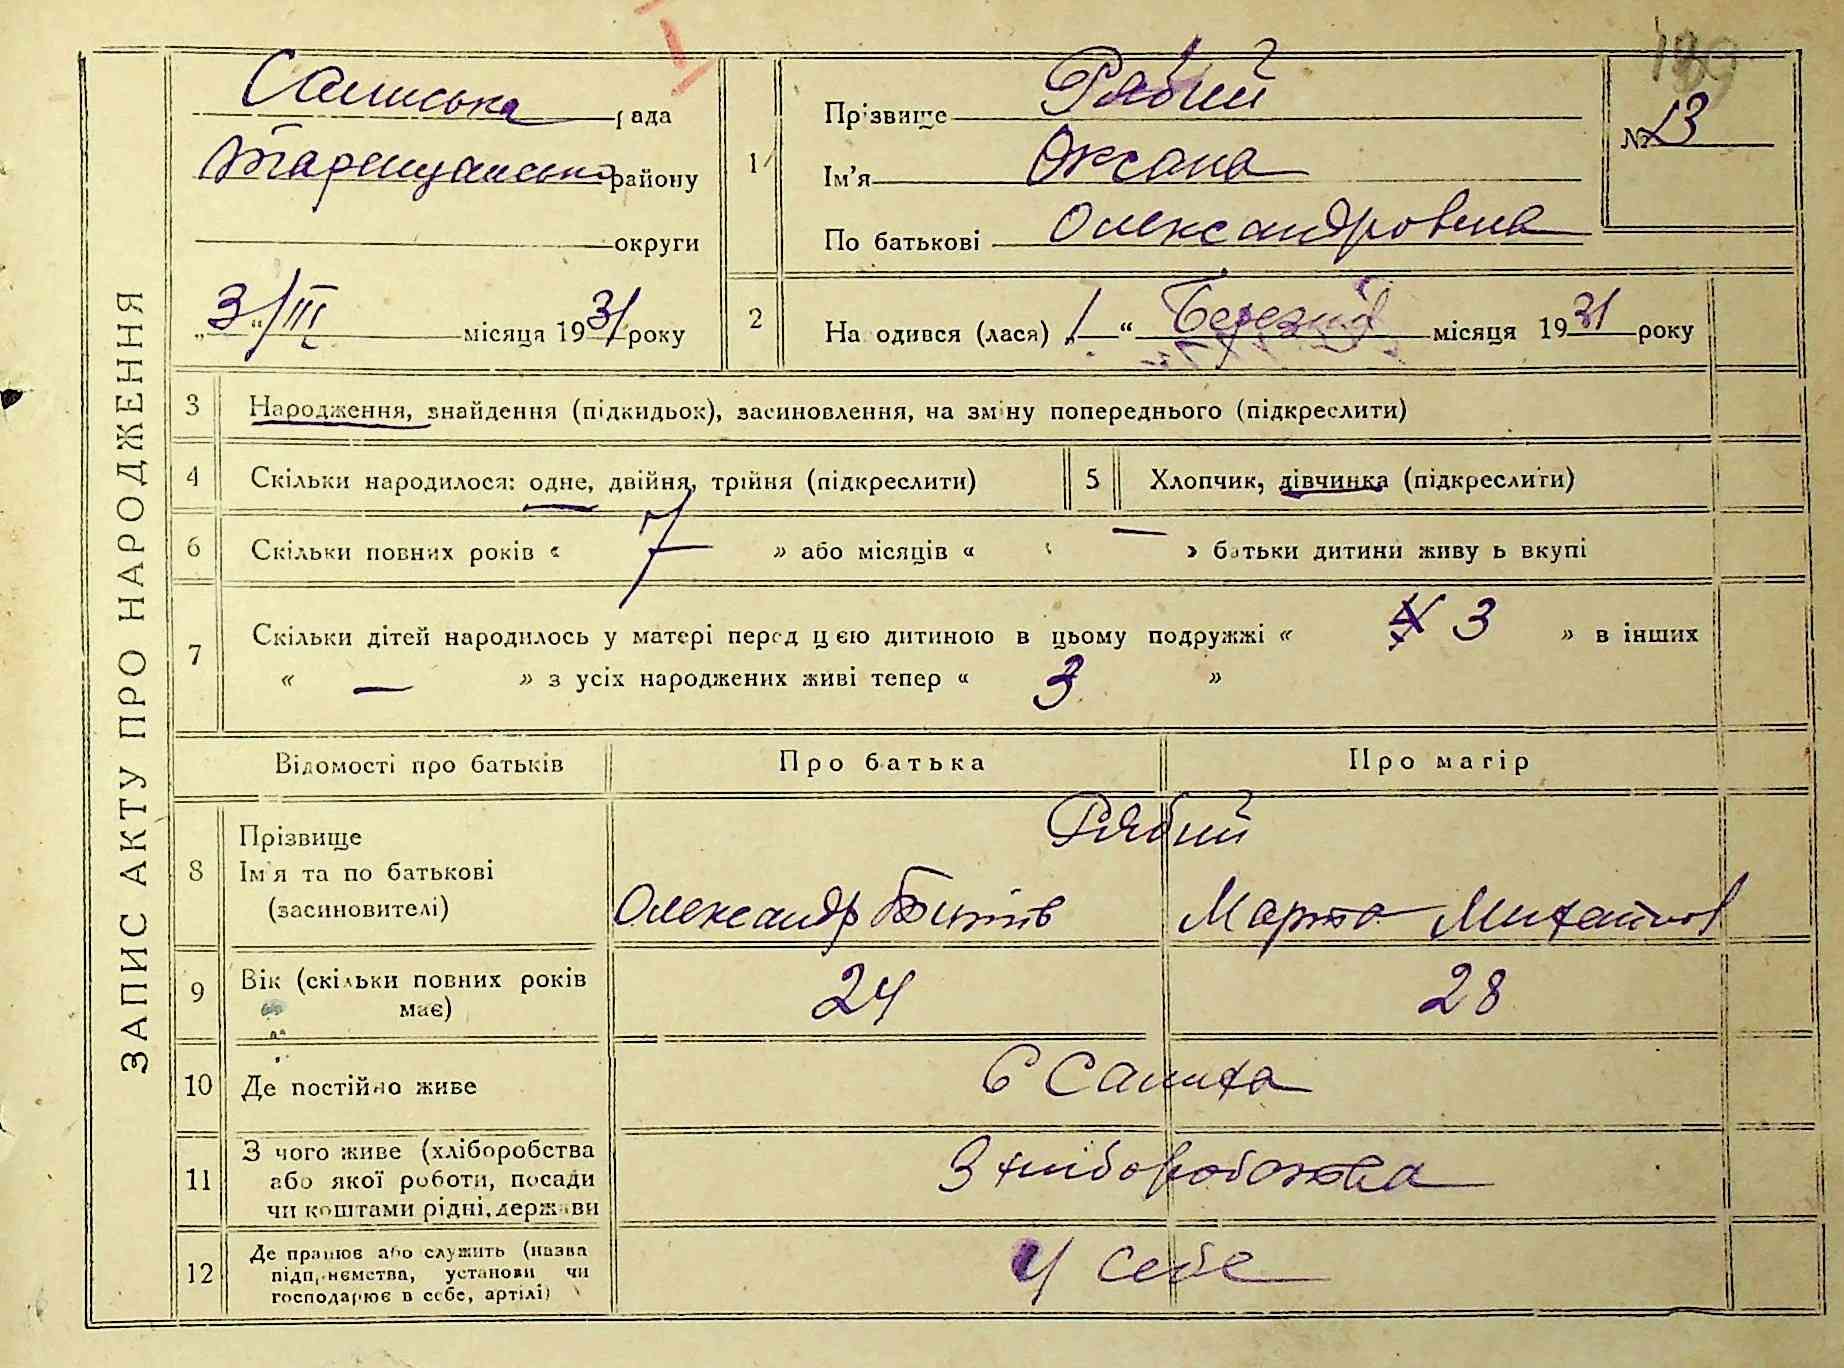 ЗАПИС АКТУ ПРО НАРОДЖЕННЯ
189
рада
району
округи
„3“/III місяця 1931 року
1
Прізвище Рябий
Ім'я Оксана
По батькові Олександровна
№ 13
2
Народився (лася) „1“ Березня місяця 1931 року
3 Народження, знайдення (підкидьок), засиновлення, на зміну попереднього (підкреслити)
4 Скільки народилося: одне, двійня, трійня (підкреслити)
5 Хлопчик, дівчинка (підкреслити)
6 Скільки повних років « 7 » або місяців « — » батьки дитини живуть вкупі
7 Скільки дітей народилось у матері перед цією дитиною в цьому подружжі « 3 » в інших
« — » з усіх народжених живі тепер « 3 »
Відомості про батьків Про батька Про матір
8 Прізвище
Ім'я та по батькові
(засиновителі)
Рябий
Олександр Марта Михайлов
9 Вік (скільки повних років
має)
24 28
10 Де постійно живе
С Салиха
11 З чого живе (хліборобства
або якої роботи, посади
чи коштами рідні, держави
З хлиборобства
12 Де працює або служить (назва
підприємства, установи чи
господарює в себе, артілі)
У себе